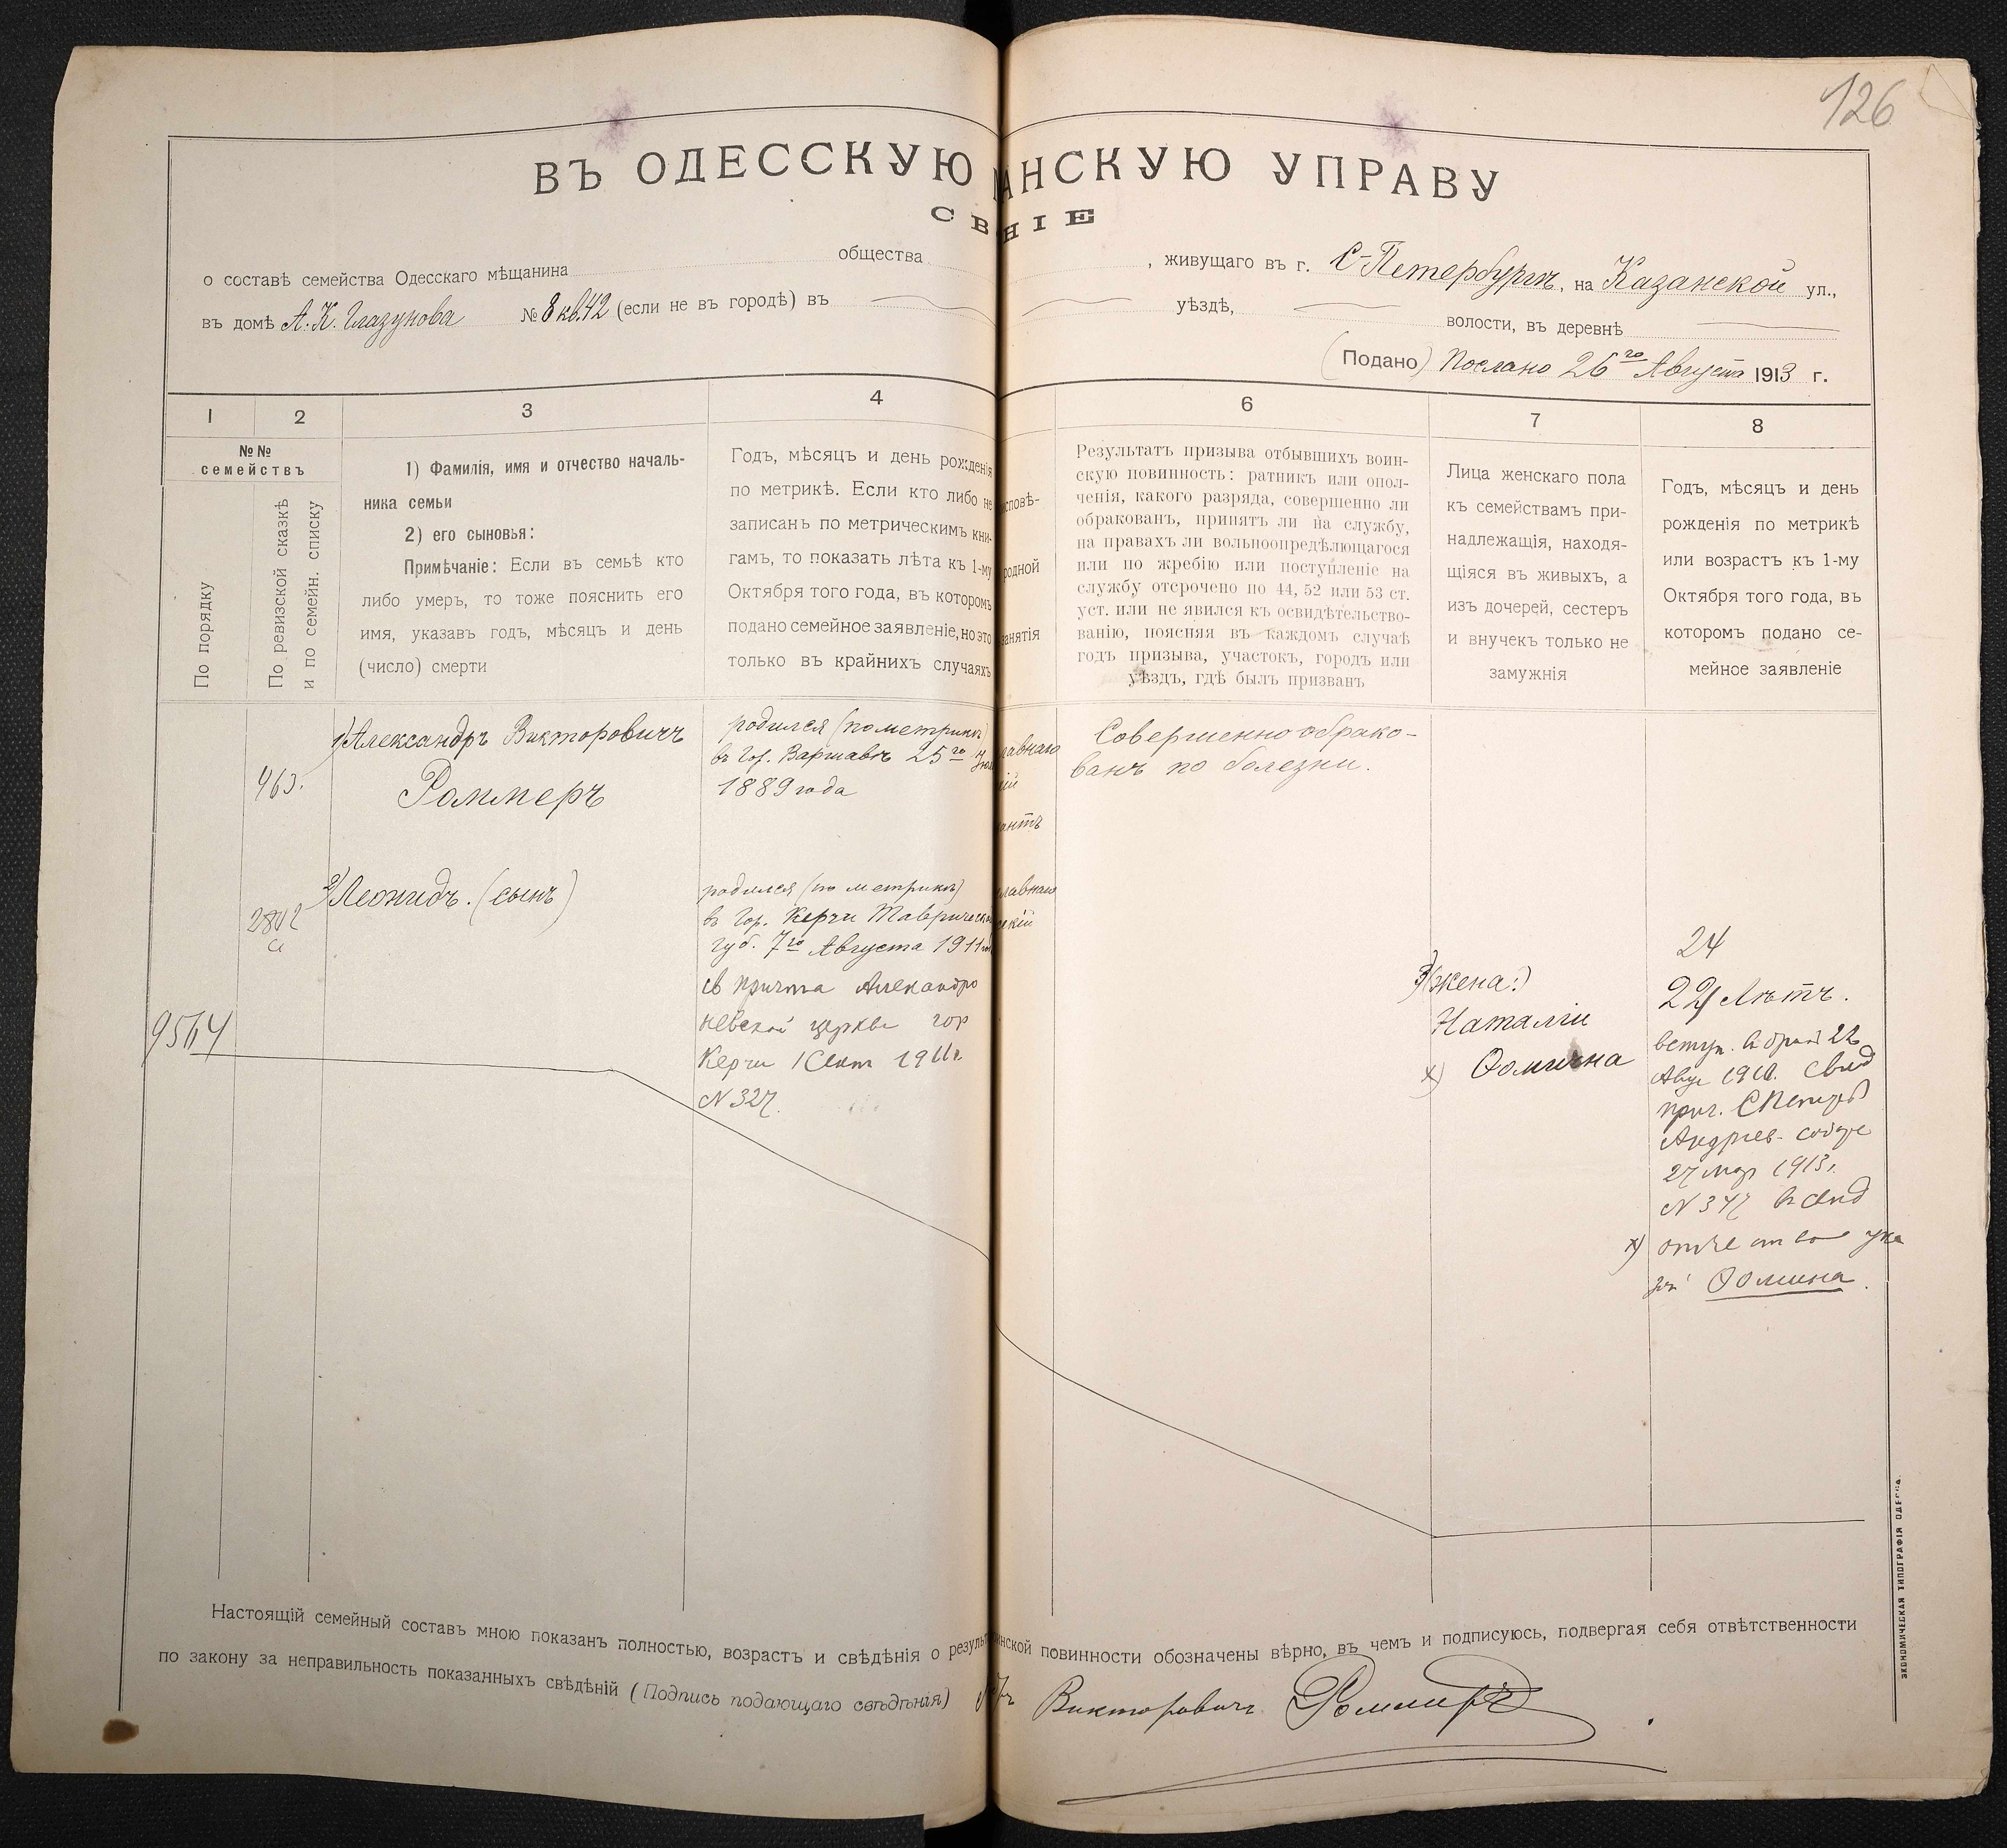 126
ВЪ ОДЕССКУЮ АНСКУЮ УПРАВУ
СВ НІЕ
о составѣ семейства Одесскаго мѣщанина общества , живущаго въ г. С-Петербургѣ, на Казанской ул.,
въ домѣ А. К. Глазунова № 8 кв. 42 (если не въ городѣ) въ уѣздѣ, волости, въ деревнѣ
(Подано) Послано 26го Августа 1913 г.
1 2 3 4 6 7 8
№№
семействъ
По порядку
По ревизской сказкѣ
и по семейн. списку
1) Фамилія, имя и отчество началь-
ника семьи
2) его сыновья:
Примѣчаніе: Если въ семьѣ кто
либо умеръ, то тоже пояснить его
имя, указавъ годъ, мѣсяцъ и день
(число) смерти
Годъ, мѣсяцъ и день рожденія
по метрикѣ. Если кто либо не
записанъ по метрическимъ кни-
гамъ, то показать лѣта къ 1-му
Октября того года, въ которомъ
подано семейное заявленіе, но это
только въ крайнихъ случаяхъ
сповѣ-
родной
занятія
Результатъ призыва отбывшихъ воин-
скую повинность: ратникъ или опол-
ченія, какого разряда, совершенно ли
обракованъ, принятъ ли на службу,
на правахъ ли вольноопредѣляющагося
или по жребію или поступленіе на
службу отсрочено по 44, 52 или 53 ст.
уст. или не явился къ освидѣтельство-
ванію, поясняя въ каждомъ случаѣ
годъ призыва, участокъ, городъ или
уѣздъ, гдѣ былъ призванъ
Лица женскаго пола
къ семействамъ при-
надлежащія, находя-
щіяся въ живыхъ, а
изъ дочерей, сестеръ
и внучекъ только не
замужнія
Годъ, мѣсяцъ и день
рожденія по метрикѣ
или возрастъ къ 1-му
Октября того года, въ
которомъ подано се-
мейное заявленіе
1) Александръ Викторовичъ
Роммеръ
463.
родился (по метрикѣ)
въ Гор. Варшавѣ 25го
1889 года
лавнаго
кій
антъ
Совершенно обрако-
ванъ по болезни.
2) Леонидъ. (сынъ)
2802
родился (по метрикѣ)
въ Гор. Керчи Таврической
губ. 7го Августа 1911
св причта Александро
невской церкви гор
Керчи 1 Сент 1911г.
N 327.
лавнаго
скій
9564
3) (жена:)
Наталія
x) Ѳомична
24
22 Лѣтъ.
вступ. въ бракъ 22
Авг 1910. Свид
прич. СПетерб
Андреев. собора
27 мар 1913г.
N 347 въ свид
x) отчество ука
зан Ѳомина.
Настоящій семейный составъ мною показанъ полностью, возрастъ и свѣдѣнія о резуль инской повинности обозначены вѣрно, въ чемъ и подписуюсь, подвергая себя отвѣтственности
по закону за неправильность показанныхъ свѣдѣній (Подпись подающаго свѣдѣнія) Викторовичъ Роммеръ
ЭКОНОМИЧЕСКАЯ ТИПОГРАФІЯ ОДЕССА.